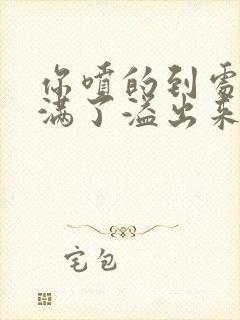 你喷的到处
满了溢出来
宅包